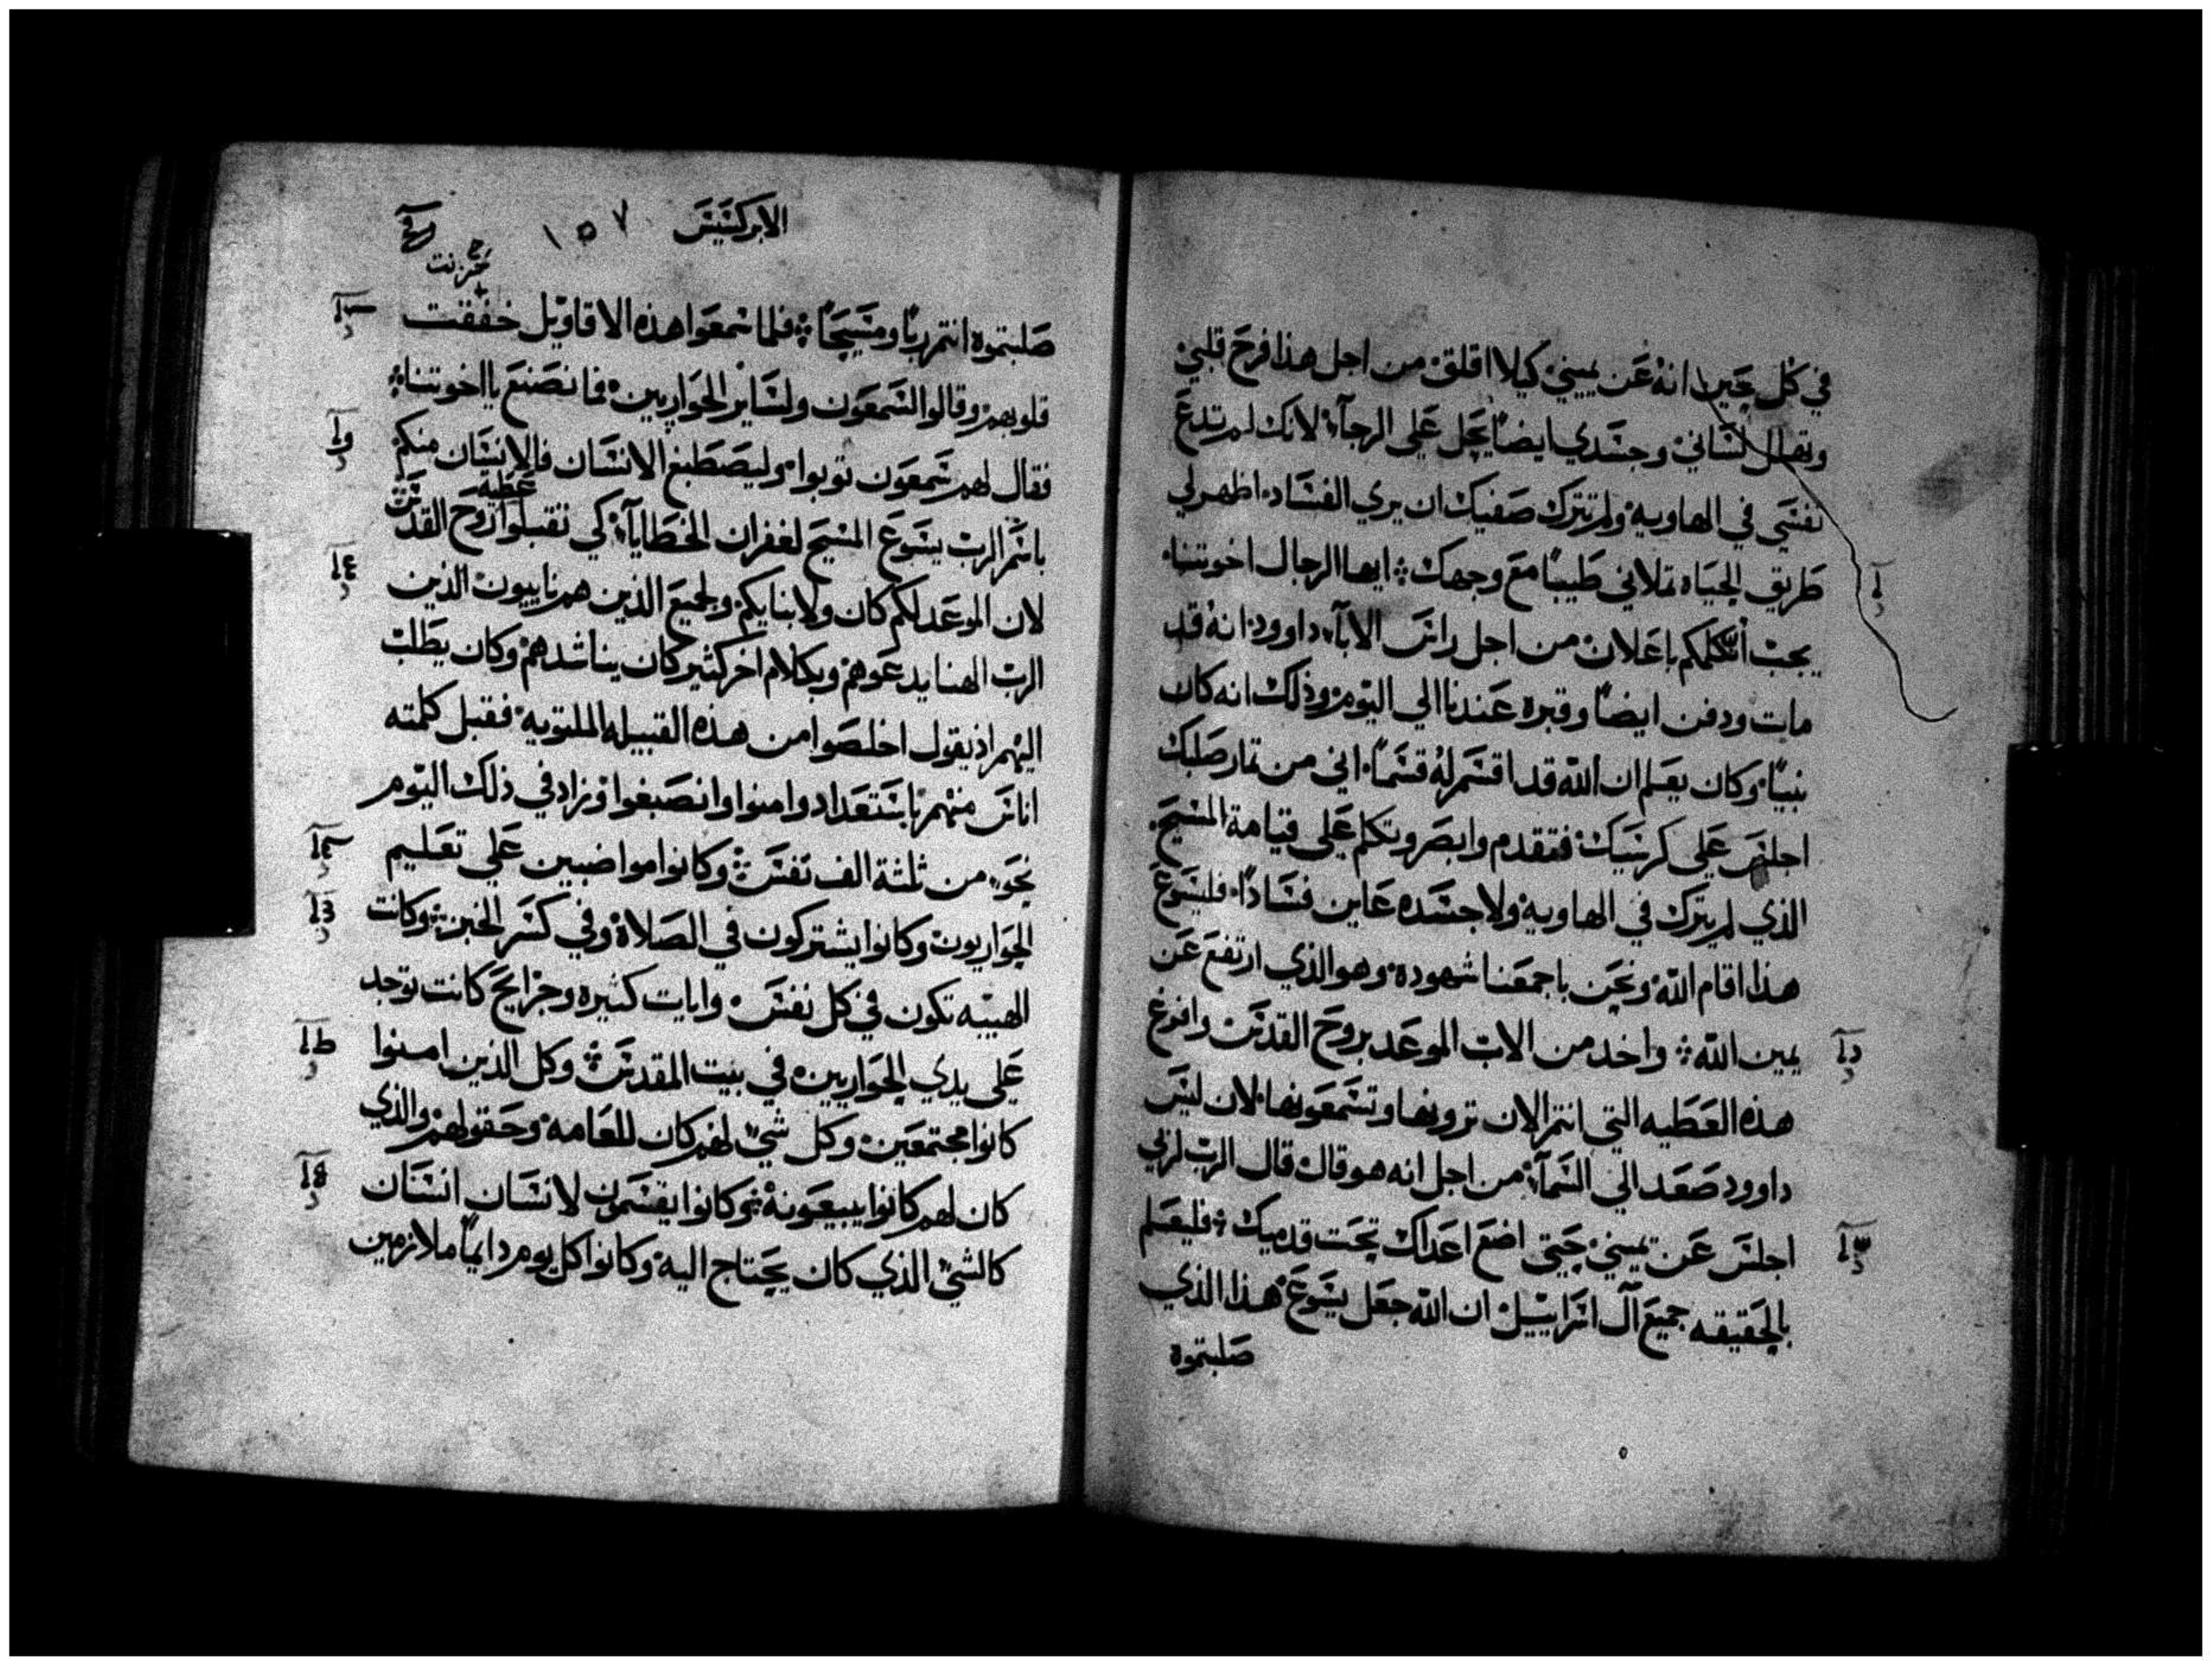 في كل حين انه عن يميني كيلا اقلق من اجل هذا فرح قلبي
وتهلل لساني وجسدي ايضاً يحل علي الرجآء لانك لم تدع
نفسي في الهاويه ولم تترك صفيك ان يري الفساد اظهر لي
طريق الحياه تملاني طيبًا مع وجهك ايها الرجال اخوتنا
يجب ان نكلمكم باعلان من اجل راس الابآء داوود انه قد
مات ودفن ايضاً وقبره عندنا الي اليوم وذلك انه كان
نبيًا وكان يعلم ان الله قد اقسم له قسمًا اني من ثمار صلبك
اجلس علي كرسيك فتقدم وابصر وتكلم علي قيامة المسيح
الذي لم يترك في الهاويه ولا جسده عاين فسادًا فليسوع
هذا اقام الله ونحن باجمعنا شهوده وهو الذي ارتفع عن
يمين الله واخد من الاب الموعد بروح القدس وافرغ
هذه العطيه التي انتم الان ترونها وتسمعونها لان ليس
داوود صعد الي السمآء من اجل انه هو قال قال الرب لربي
اجلس عن يميني حتي اضع اعداك تحت قدميك فليعلم
بالحقيقه جميع آل اسراييل ان الله جعل يسوع هذا الذي
صلبتموه
الابركسيس ١٥٧
تحزنت
صلبتموه انتم ربًا ومسيحًا فلما سمعوا هذه الاقاويل خفقت
قلوبهم وقالوا لشمعون ولساير الحواريين فما نصنع يا اخوتنا
فقال لهم شمعون توبوا وليصطبغ الانسان فالانسان منكم
عطية
باسم الرب يسوع المسيح لغفران الخطايآ كي تقبلوا روح القدس
لان الموعد لكم كان ولابنايكم ولجميع الذين هم ناييون الذين
الرب الهنا يدعوهم وبكلام اخر كثير كان يناشدهم وكان يطلب
اليهم اذ يقول اخلصوا من هذه القبيله الملتويه فقبل كلمته
اناس منهم باستعداد وامنوا وانصبغوا وزاد في ذلك اليوم
نحو من ثلثة الف نفس وكانوا مواضبين علي تعليم
الحواريون وكانوا يشتركون في الصلاة وفي كسر الخبز وكانت
الهيبه تكون في كل نفس وايات كثيره وجرايح كانت توجد
علي يدي الحواريين في بيت المقدس وكل الذين امنوا
كانوا مجتمعين وكل شي لهم كان للعامه وحقولهم والذي
كان لهم كانوا يبيعونه وكانوا يقسمون لانسان انسان
كالشي الذي كان يحتاج اليه وكانوا كل يوم دايمًا ملازمين